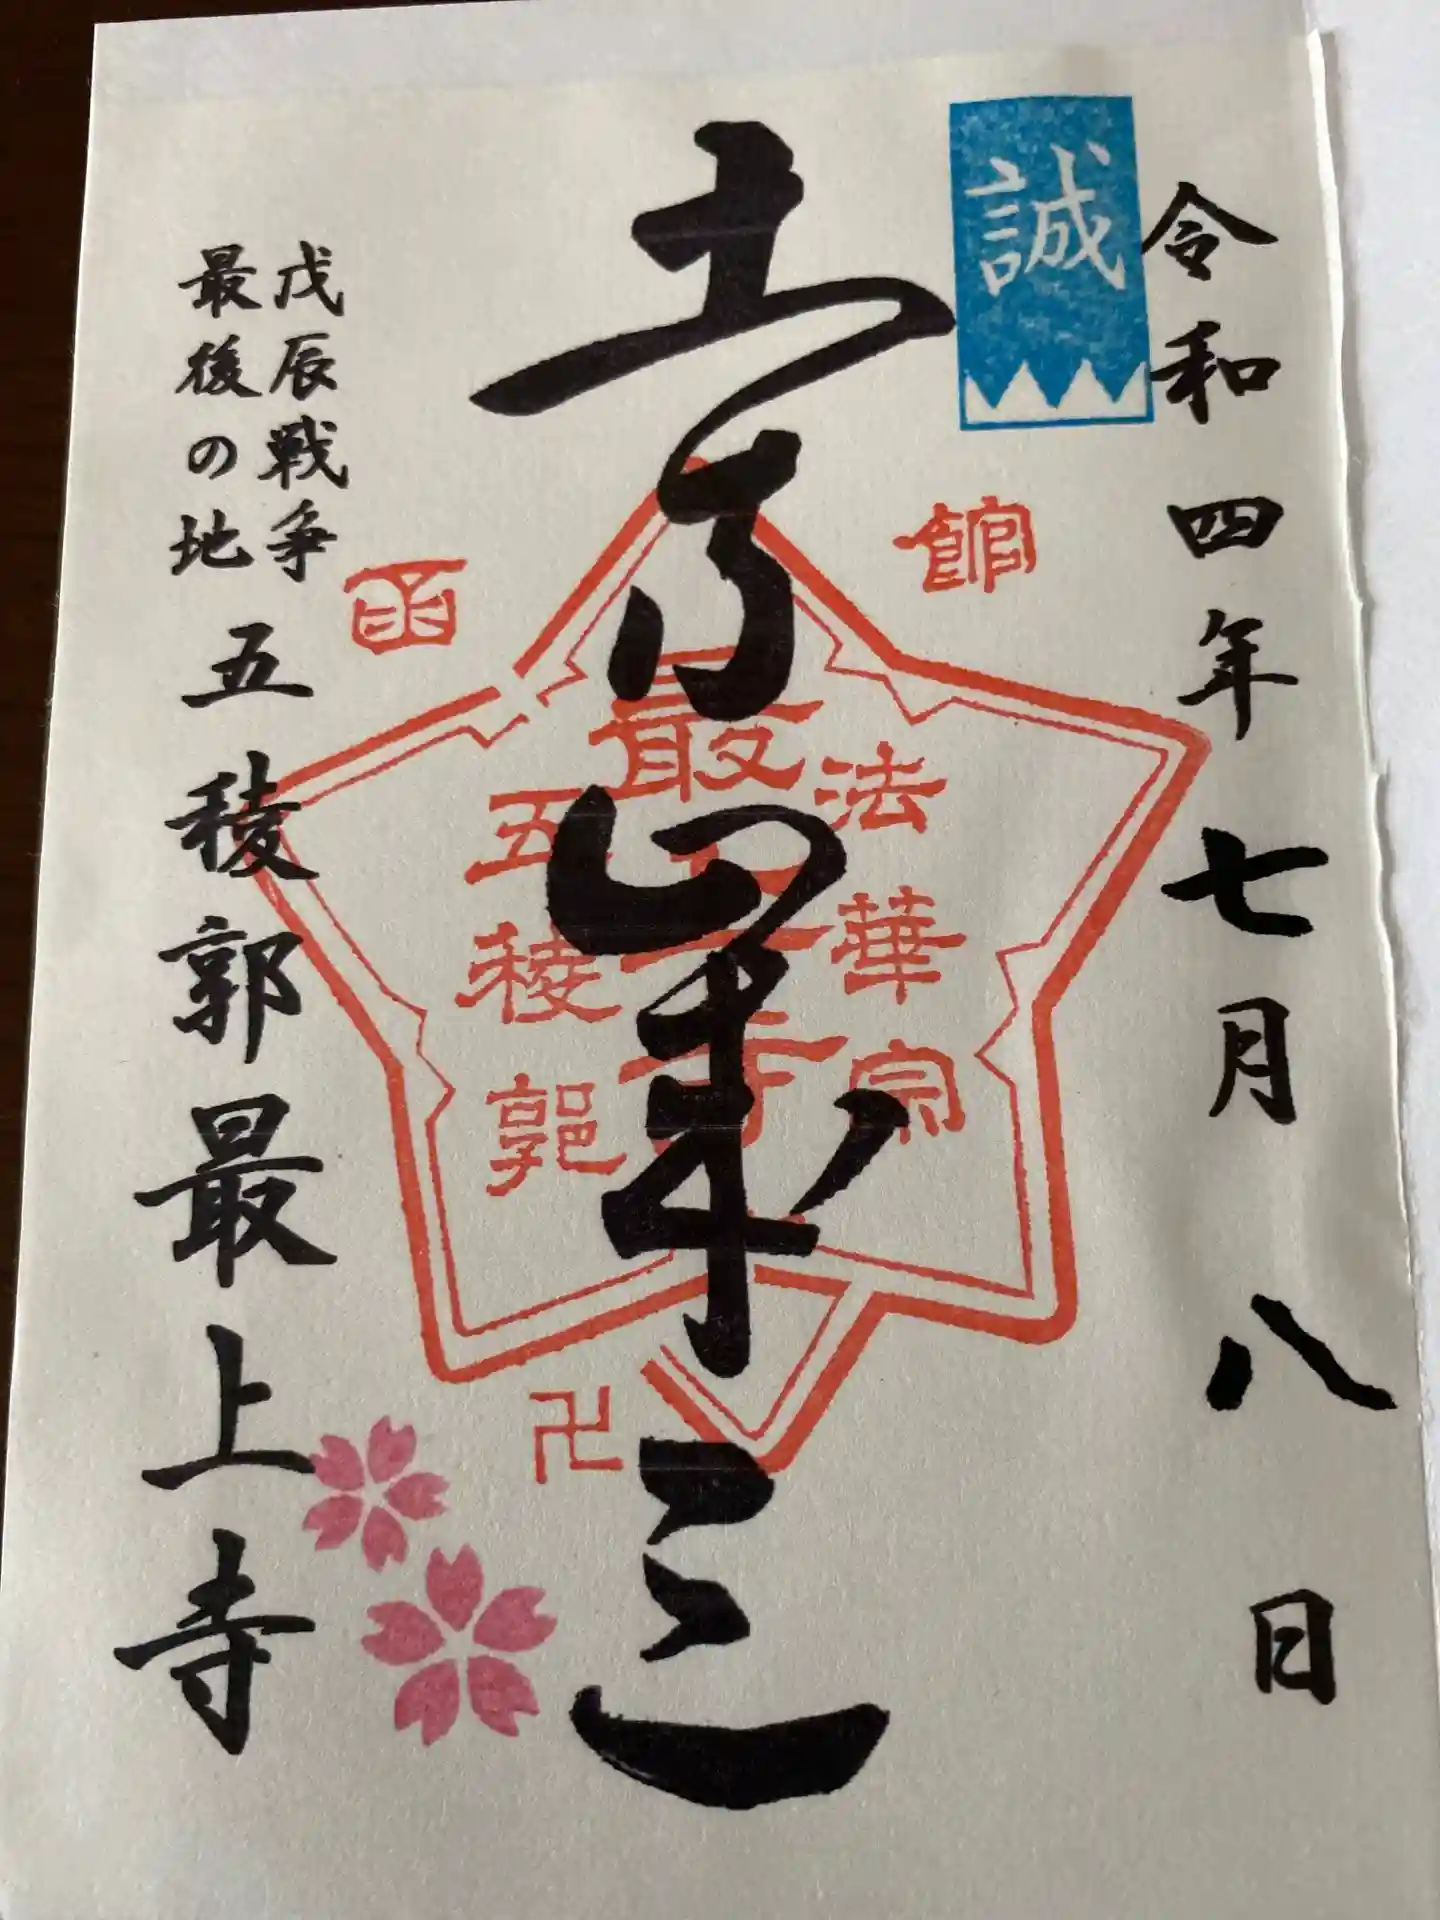 令和四年七月八日
誠
土方歳三
函館
法華宗
最上寺
五稜郭
卍
戊辰戦争
最後の地
五稜郭最上寺